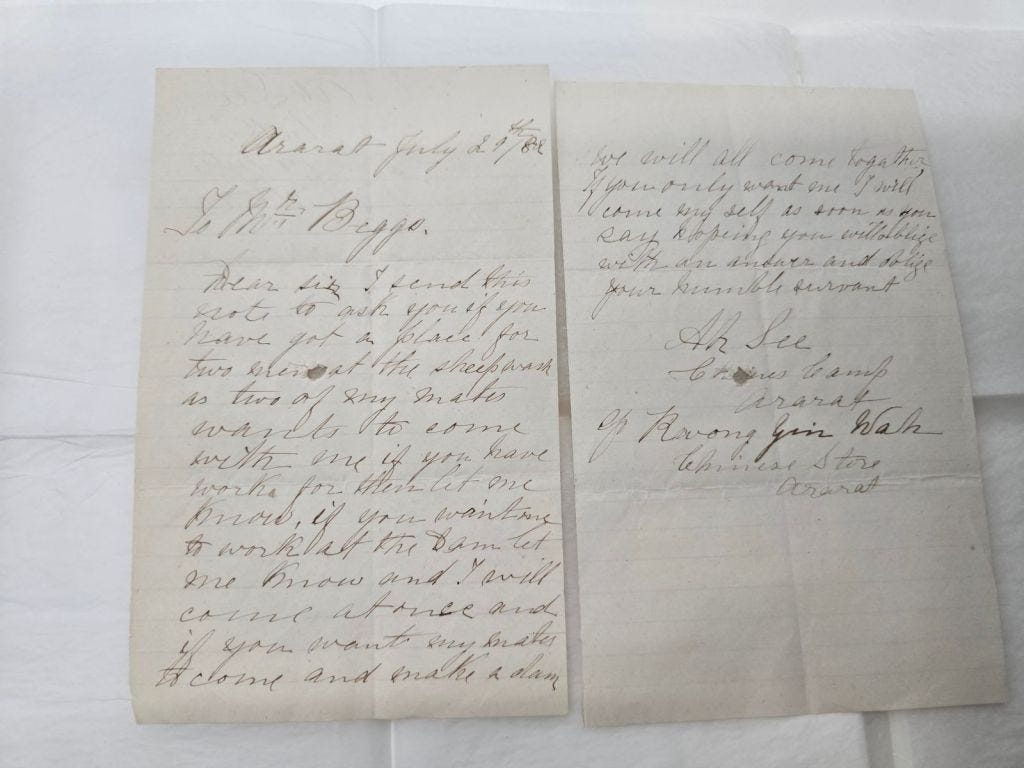 Ararat July 29th/82
To Mr. Beggs.
Dear sir I send this
note to ask you if you
have got a place for
two men at the sheepwash
as two of my mates
wants to come
with me if you have
work for them let me
know, if you want me
to work at the Dam let
me know and I will
come at once and
if you want my mates
to come and make a dam
We will all come togather
If you only want me I will
come my self as soon as you
say hopeing you will oblige
with an answer and oblige
your humble servant
Ah See
Camp
Ararat
Kwong Yin Wah
Chinese Store
Ararat